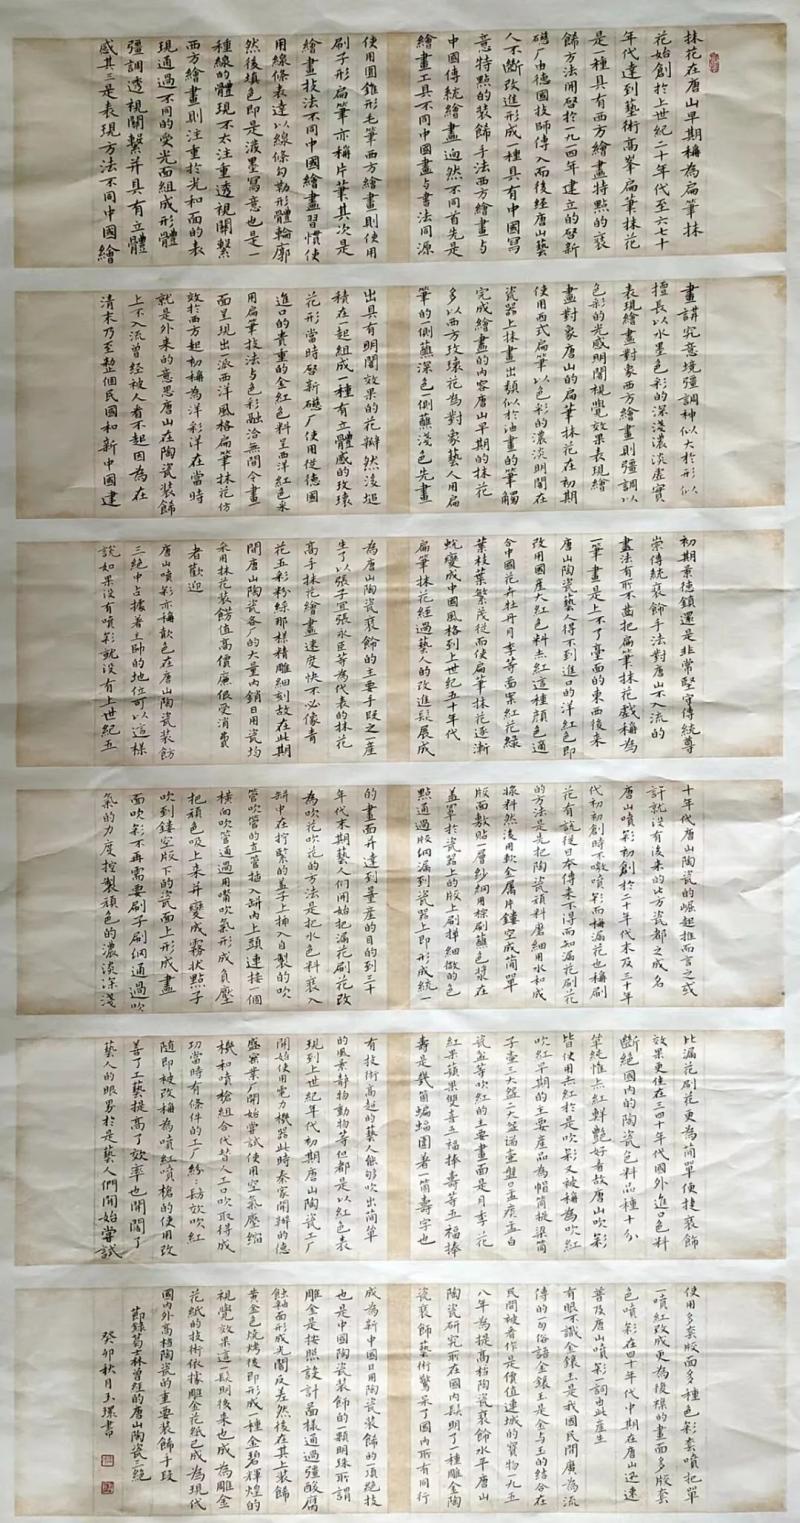 抹花在唐山早期稱為扁筆抹
花始創於上世紀二十年代至六七十
年代達到藝術高峯扁筆抹花
是一種具有西方繪畫特點的裝
飾方法開啓於一九一四年建立的啓新
磁厂由德國技師傳入而後經唐山藝
人不斷改進形成一種具有中國寫
意特點的裝飾手法西方繪畫與
中國傳統繪畫迥然不同首先是
繪畫工具不同中國畫与書法同源
使用圓錐形毛筆西方繪畫則使用
刷子形扁筆亦稱片筆其次是
繪畫技法不同中國繪畫習慣使
用線條表達以線條勾勒形體輪廓
然後填色即是潑墨寫意也是一
種線的體現不太注重透視關繫
西方繪畫則注重於光和面的表
現通過不同的受光面組成形體
彊調透視關繫并具有立體
感其三是表現方法不同中國繪
畫講究意境強調神似大於形似
擅長以水墨色彩的深淺濃淡虛實
表現繪畫對象西方繪畫則強調以
色彩的光感明闇視覺效果表現繪
畫對象唐山的扁筆抹花在初期
使用西式扁筆以色彩的濃淡明闇在
瓷器上抹畫出類似於油畫的筆觸
完成繪畫的內容唐山早期的抹花
多以西方玫瑰花為對象藝人用扁
筆的側蘸深色一側蘸淺色先畫
出具有明闇效果的花瓣然後堆
積在一起組成一種有立體感的玫瑰
花形當時啓新磁厂使用從德國
進口的貴重的金紅色料呈西洋紅色采
用扁筆技法与色彩融洽無間令畫
面呈現出一派西洋風格扁筆抹花仿
效於西方起初稱為洋彩洋在當時
就是外来的意思唐山在陶瓷裝飾
上不入流曾經被人看不起因為在
清末乃至整個民國和新中國建
初期景德鎮還是非常堅守傳統尊
崇傳統裝飾手法對唐山不入流的
畫法有所不齒把扁筆抹花戲稱為
一筆畫是上不了臺面的東西後来
唐山陶瓷藝人得不到進口的洋紅色即
改用國産大紅色料赤紅這種顔色適
合中國花卉牡丹月季等面案紅花緑
葉枝葉繁茂從而使扁筆抹花逐漸
蛻變成中國風格到上世紀五十年代
扁筆抹花經過藝人的改進髮展成
為唐山陶瓷裝飾的主要手段之一産
生了以張子宜張永臣等為代表的抹花
高手抹花繪畫速度快不必像青
花五彩粉綵那様精雕細刻故在此期
間唐山陶瓷各厂的大量內銷日用瓷均
采用抹花裝飾值高價廉很受消費
者歡迎
唐山噴彩亦稱歕色在唐山陶瓷裝飭
三絶中占據著王師的地位可以這樣
說如果沒有噴彩就沒有上世紀五
十年代唐山陶瓷的崛起推而言之或
許就没有後来的北方瓷都之成名
唐山噴彩初創於二十年代末及三十年
代初初創時不噭噴彩而稱漏花也稱刷
花有説從日本傳来不得而知漏花刷花
的方法是先把陶瓷顔料磨細用水和成
漿料然後用軟金属片鏤空成簡單
版面敷貼一層紗綱用棕刷蘸色漿在
盖罩於瓷器上的版上刷擇細微的色
點通過版綱漏到瓷器上即形成統一
的畫面并達到量産的目的到三十
年代末期藝人們開始把漏花刷花改
為吹花吹花的方法是把水色料裝入
缾中在拧緊的盖子上插入自製的吹
管吹管的立管插入缾內上頭連接一個
橫向吹管通過用嘴吹氣形成負壓
把頑色吸上来并變成霧状點子
吹到鏤空版下的瓷面上形成畫
面吹彩不再需要刷子刷綱通過吹
氣的力度控製顔色的濃淡深淺
比漏花刷花更為簡單便捷裝飾
效果更佳在三四十年代國外進口色料
斷絶國內的陶瓷色料品種十分
單純惟赤紅鮮艷好看故唐山吹彩
皆使用赤紅於是吹彩又被稱為吹紅
吹紅早期的主要産品為帽筒梳梁筒
子壷三大盌二大盌海壷盤口盂庋盂白
瓷盆等吹紅的主要畫面是月季花
紅果蘋果雙喜五福捧壽等五福捧
壽是幾箇蝙蝠圍著一箇壽字也
有技術高超的藝人能够吹出簡單
的風景静物動物等但都是以紅色表
現到上世紀年代初期唐山陶瓷工厂
開始使用電力機器此時秦家開辦的德
盛窯業厂開始嘗試使用空氣壓缩
機和噴槍組合代替人工口吹取得成
功當時有條件的工厂紛紛効放吹紅
隨即被改稱為噴紅噴槍的使用改
善了工藝提高了效率也開闊了
藝人的眼界於是藝人們開始嘗試
使用多套版面多種色彩套噴把單
一噴紅改成更為復襍的畫面多版套
色噴彩在四十年代中期在唐山迅速
普及唐山噴彩一詞由此産生
有眼不識金鑲玉是我國民間廣為流
傳的一句俗語金鑲玉是金与玉的結合在
民間被看作是價值連城的寶物一九五
八年為提高档陶瓷裝飾水平唐山
陶瓷研究所在國內髮明了一種雕金陶
瓷裝飾藝術驚呆了國內所有同行
成為新中國日用陶瓷裝飾的一項絶技
也是中國陶瓷裝飾的一顆明珠所謂
雕金是按照設計畵様通過强酸腐
蝕釉面形成光闇反差然後在其上裝飾
黃金色燒烤後即形成一種金碧輝煌的
視覺效果這一髮明後来也成為雕金
花紙的技術依據雕金花紙已成為現代
國內外高档陶瓷的重要裝飾手段
節録葛士林曾經的唐山陶瓷三絶
癸卯秋月玉璞書